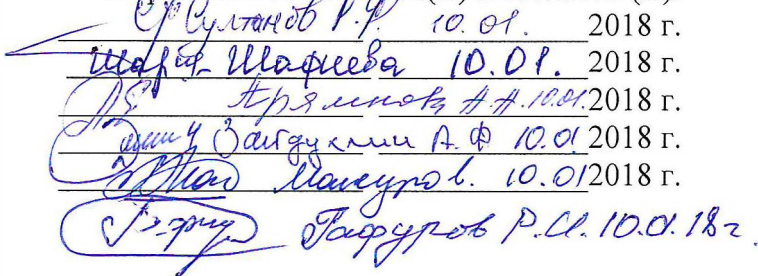 Султанов Р.Р. 10.01. 2018 г.
Шафиева 10.01. 2018 г.
А.А. 10.01. 2018 г.
А.Ф 10.01 2018 г.
Мансуров. 10.01 2018 г.
Гафуров Р.И. 10.01.18 г.